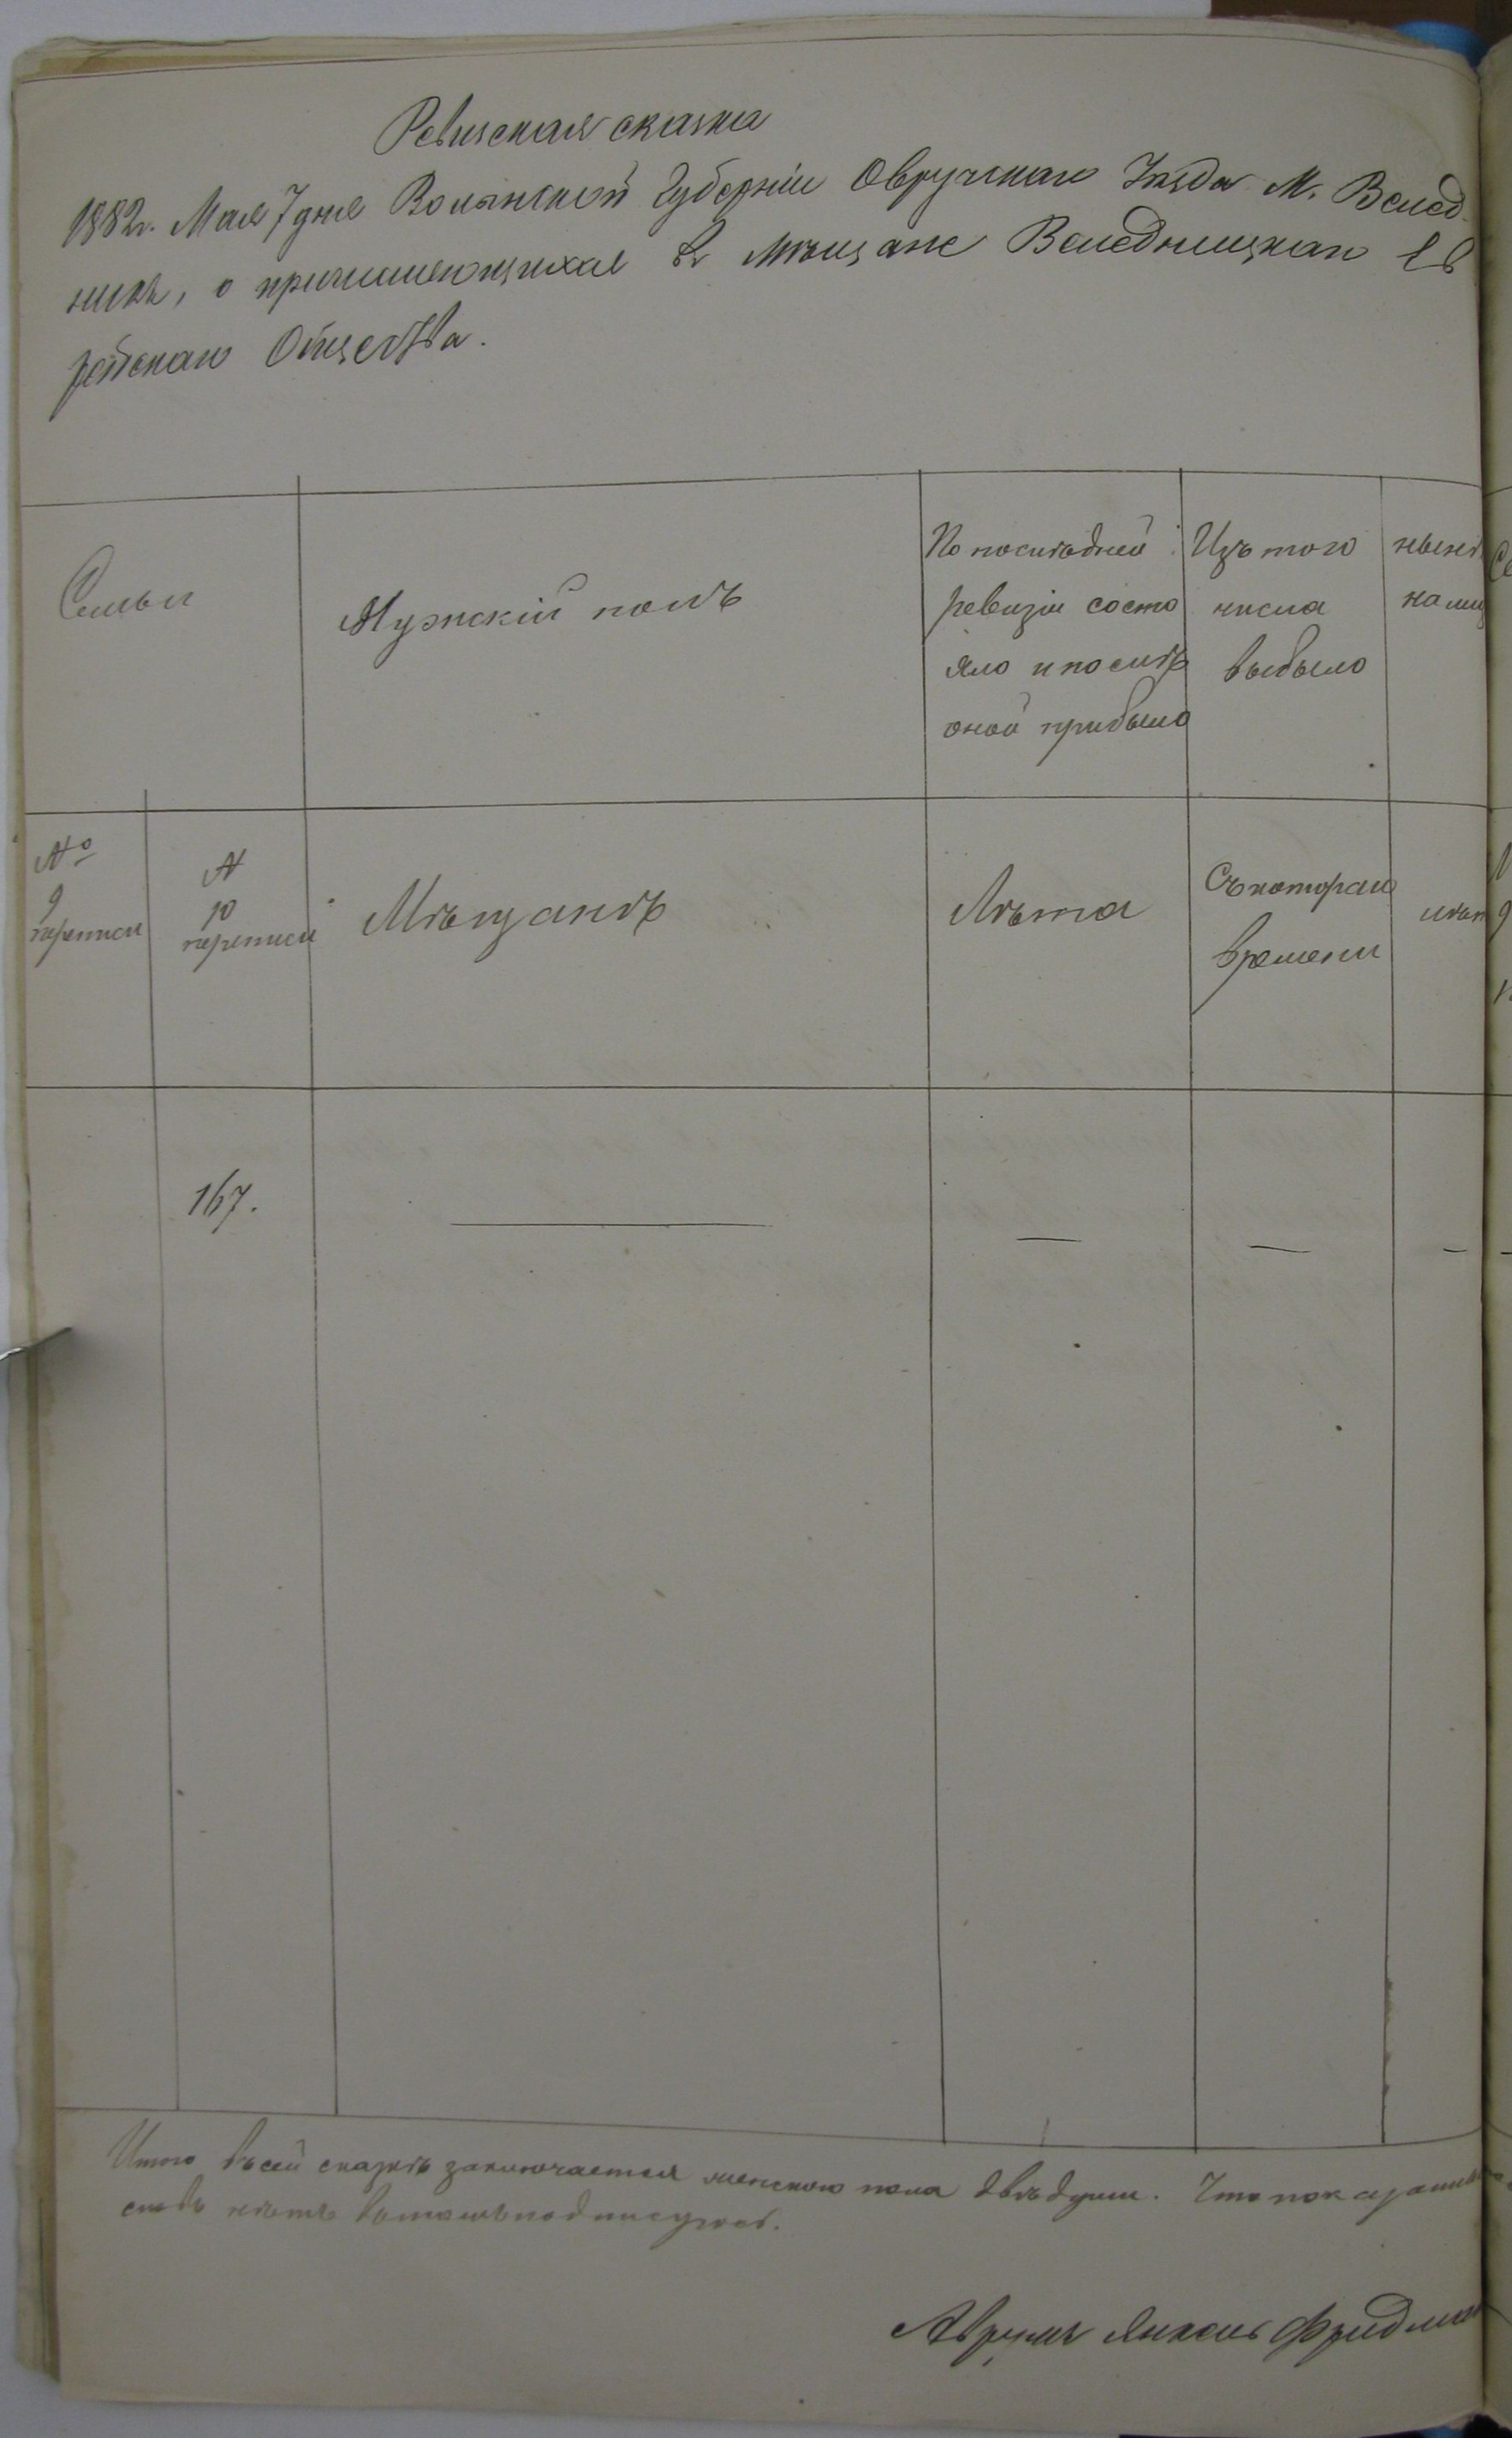 Ревизская сказка
1882г. Мая 7 дня Волынской Губерніи Овручскаго Уѣзда М. Велед-
никъ, о причисляющихся въ мѣщане Веледницкаго Ев
рейскаго Общества.
Семьи
Мужскій полъ
По послѣдней
ревизіи состо
яло и послѣ
оной прибыло
Изъ того
числа
выбыло
нынѣ
на лиц
№
9
переписи
№
10
переписи
Мѣщанъ
Лѣта
Съ котораго
времени
лѣт
167.
Итого въ сей сказкѣ заключается женскаго пола двѣ души. Что показанны
нѣтъ въ томъ подписуюсь.
Янкель Фридма